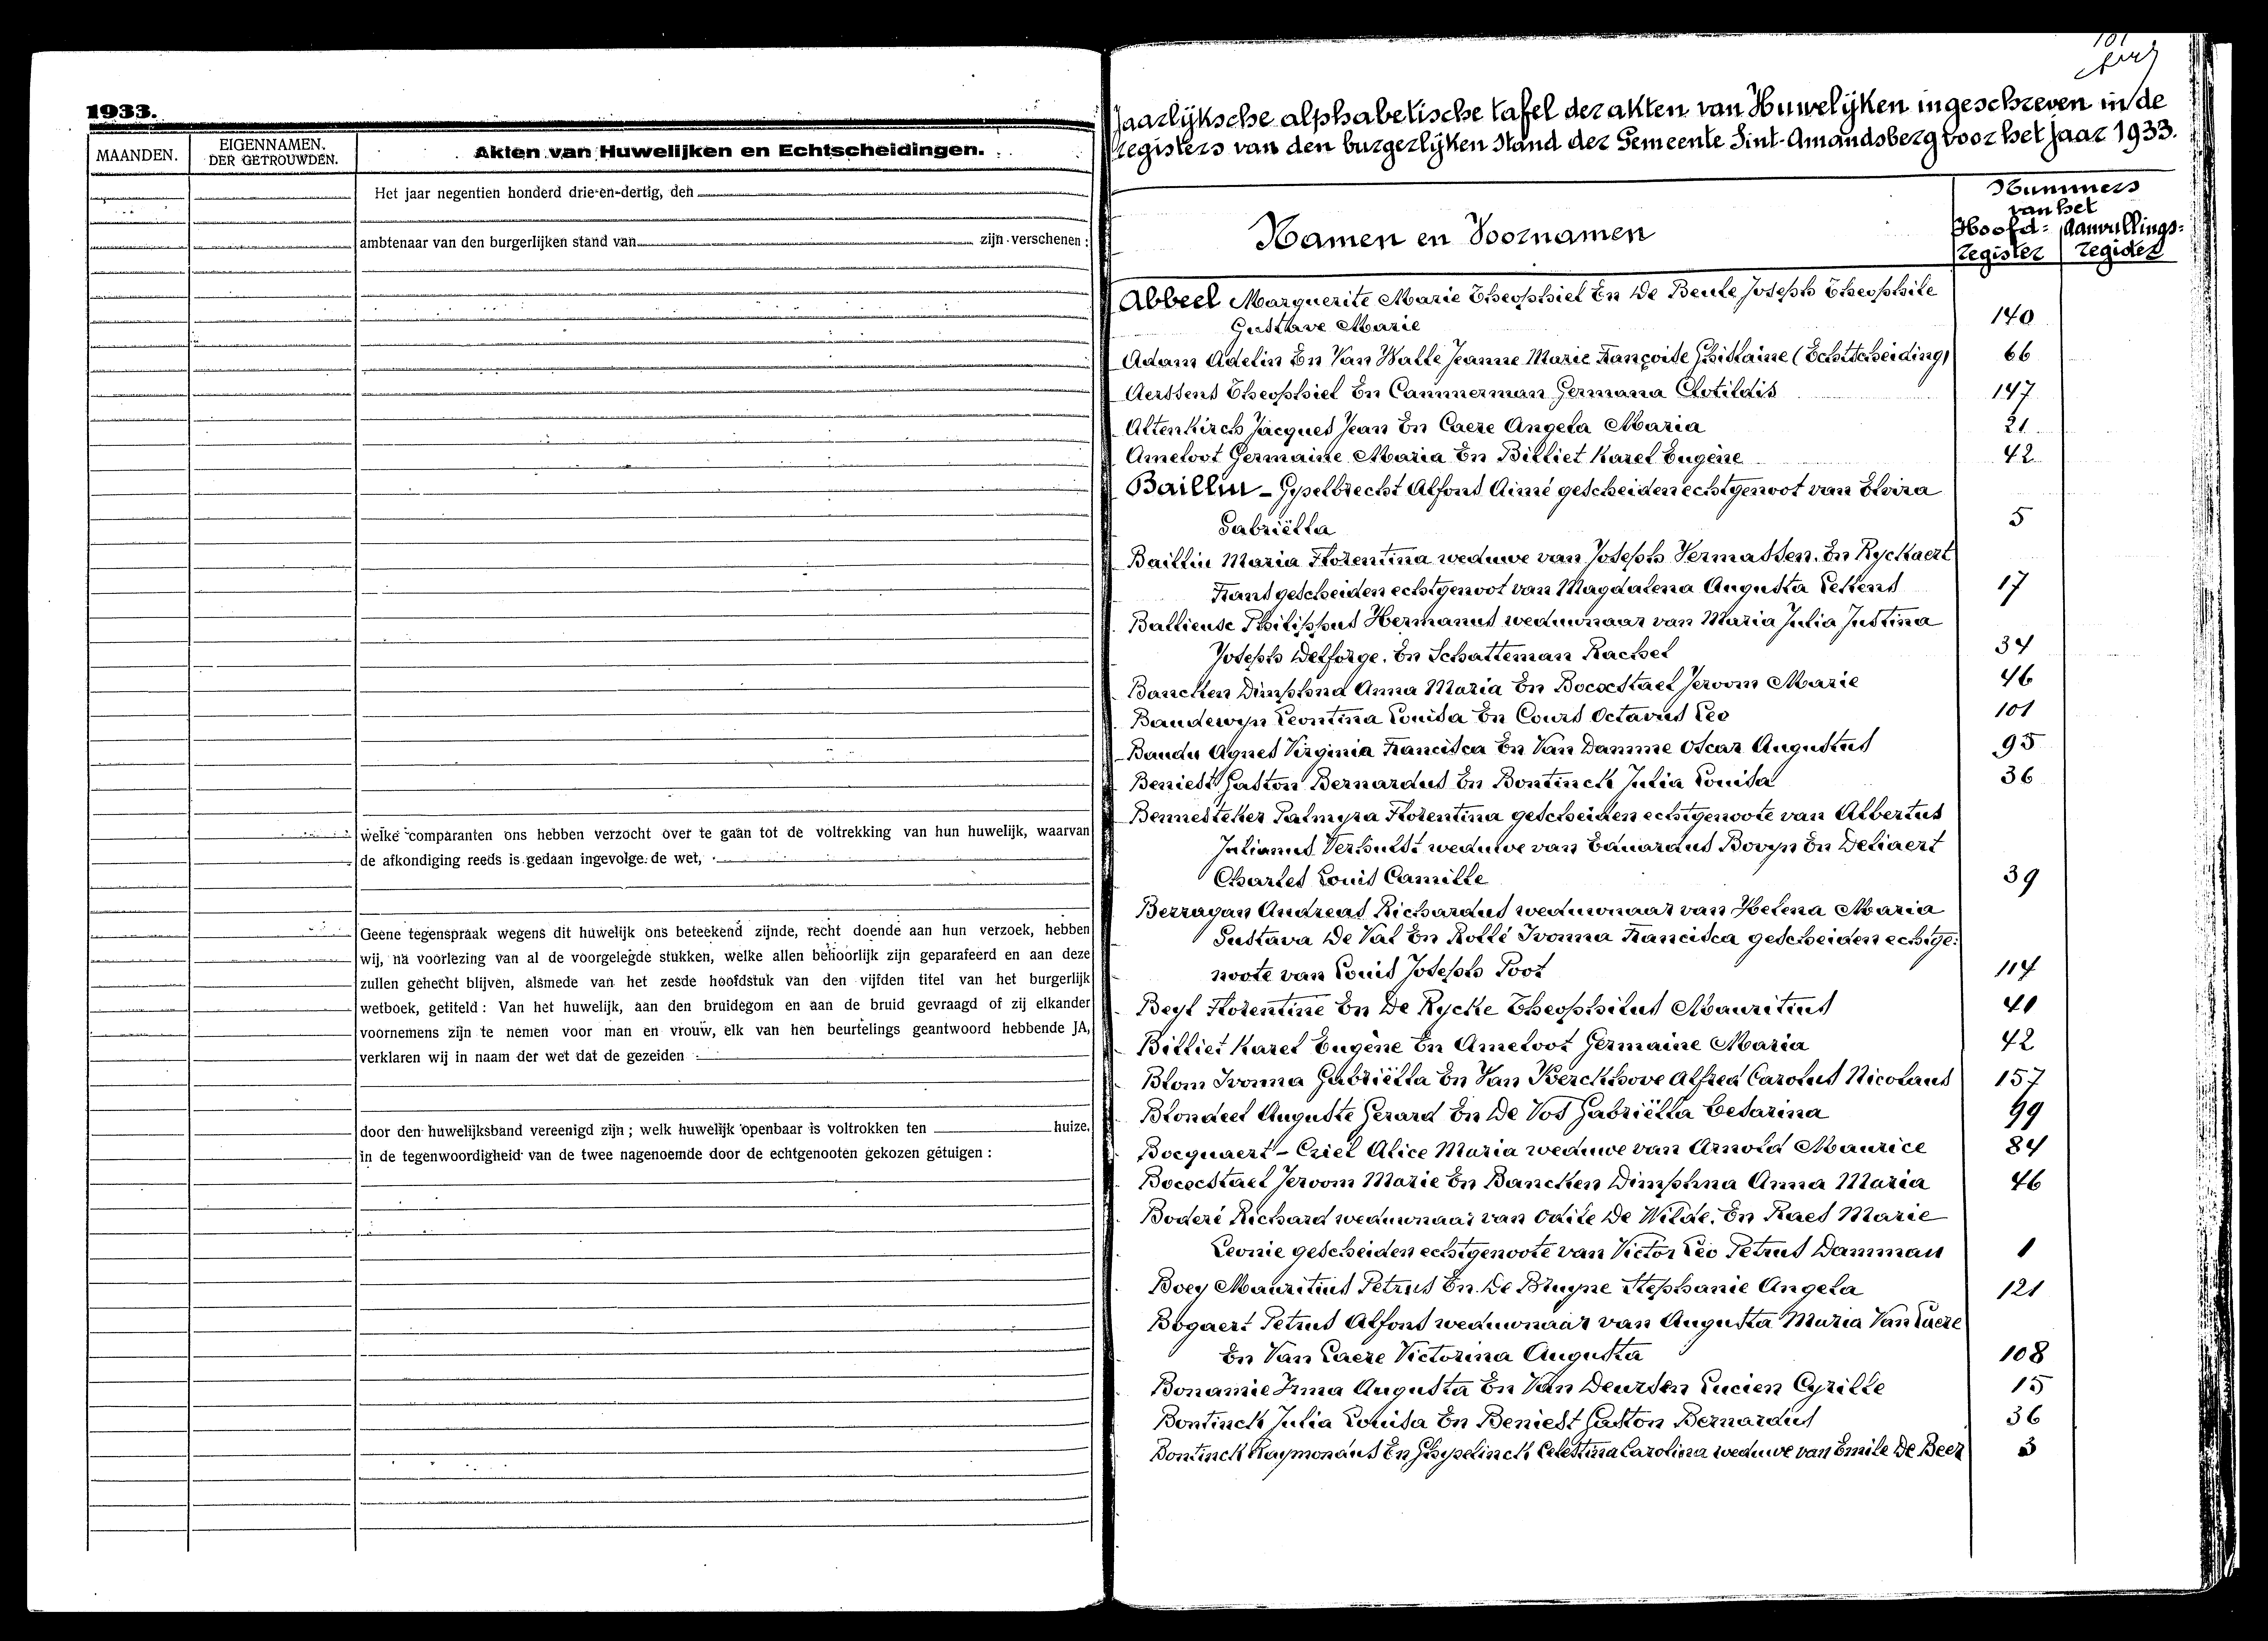 1933.
MAANDEN.
EIGENNAMEN.
DER GETROUWDEN.
Akten van Huwelijken en Echtscheidingen.
Het jaar negentien honderd drie-en-dertig, den
ambtenaar van den burgerlijken stand van zijn verschenen:
welke comparanten ons hebben verzocht over te gaan tot de voltrekking van hun huwelijk, waarvan
de afkondiging reeds is gedaan ingevolge de wet,
Geene tegenspraak wegens dit huwelijk ons beteekend zijnde, recht doende aan hun verzoek, hebben
wij, na voorlezing van al de voorgelegde stukken, welke allen behoorlijk zijn geparafeerd en aan deze
zullen gehecht blijven, alsmede van het zesde hoofdstuk van den vijfden titel van het burgerlijk
wetboek, getiteld: Van het huwelijk, aan den bruidegom en aan de bruid gevraagd of zij elkander
voornemens zijn te nemen voor man en vrouw, elk van hen beurtelings geantwoord hebbende JA,
verklaren wij in naam der wet dat de gezeiden
door den huwelijksband vereenigd zijn; welk huwelijk openbaar is voltrokken ten huize.
in de tegenwoordigheid van de twee nagenoemde door de echtgenooten gekozen getuigen:
101
Jaarlijksche alphabetische tafel der akten van Huwelijken ingeschreven in de
registers van den burgerlijken stand der Gemeente Sint-Amandsberg voor het jaar 1933.
Namen en Voornamen
Nummers
van het
Hoofd= Aanvullings=
register register
Abbeel Marguerite Marie Theophiel En De Beule Joseph Theophile
Gustave Marie 140
Adam Adelin En Van Walle Jeanne Marie Françoise Ghislaine (Echtscheiding) 66
Aerssens Theophiel En Cammerman Germana Clotildis 147
Altenkirch Jacques Jean En Caere Angela Maria 21
Ameloot Germaine Maria En Billiet Karel Eugène 42
Baillin - Gyselbrecht Alfons Aimé gescheiden echtgenoot van Elvira
Gabriëlla 5
Baillin Maria Florentina weduwe van Joseph Vermassen. En Ryckaert
Frans gescheiden echtgenoot van Magdalena Augusta Lellens 17
Ballieuse Philippus Hermanus weduwnaar van Maria Julia Justina
Joseph Delforge. En Schatteman Rachel 34
Bancken Dimphna Anna Maria En Bocxstael Jeroom Marie 46
Baudewyn Leontina Louisa En Cours Octavus Leo 101
Baudu Agnes Virginia Francisca En Van Damme Oscar Augustus 95
Beniest Gaston Bernardus En Bontinck Julia Louisa 36
Bennesteker Palmyra Florentina gescheiden echtgenoote van Albertus
Julianus Verhulst weduwe van Eduardus Bovyn En Deliaert
Charles Louis Camille 39
Berragan Andreas Richardus weduwnaar van Helena Maria
Gustava De Vat En Rollé Ivonna Francisca gescheiden echtge=
noote van Louis Joseph Poot 114
Beyl Florentine En De Rycke Theophilus Mauritius 40
Billiet Karel Eugène En Ameloot Germaine Maria 42
Blom Ivonna Gabriëlla En Van Kerckhove Alfred Carolus Nicolaus 157
Blondeel Auguste Gerard En De Vos Gabriëlla Cesarina 99
Bocquaert - Criel Alice Maria weduwe van Arnold Maurice 84
Bocxstael Jeroom Marie En Bancken Dimphna Anna Maria 46
Boderé Richard weduwnaar van Odile De Wilde. En Raes Marie
Leonie gescheiden echtgenoote van Victor Leo Petrus Damman 1
Boey Mauritius Petrus En De Bruyne Stephanie Angela 121
Bogaert Petrus Alfons weduwnaar van Augusta Maria Van Laere
En Van Laere Victorina Augusta 108
Bonamie Irma Augusta En Van Deursen Lucien Cyrille 15
Bontinck Julia Louisa En Beniest Gaston Bernardus 36
Bontinck Raymondus En Ghyselinck Celestina Carolina weduwe van Emile De Beer 3